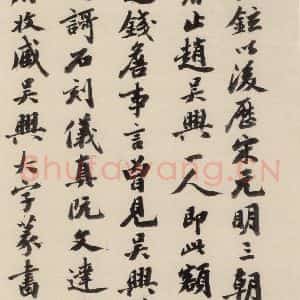 鉉以後歷宋元明三朝
止趙吳興一人即此額
錢詹事言曾見吳興
石刻儀真阮文達
收藏吳興大字篆書
Shufawang.CN